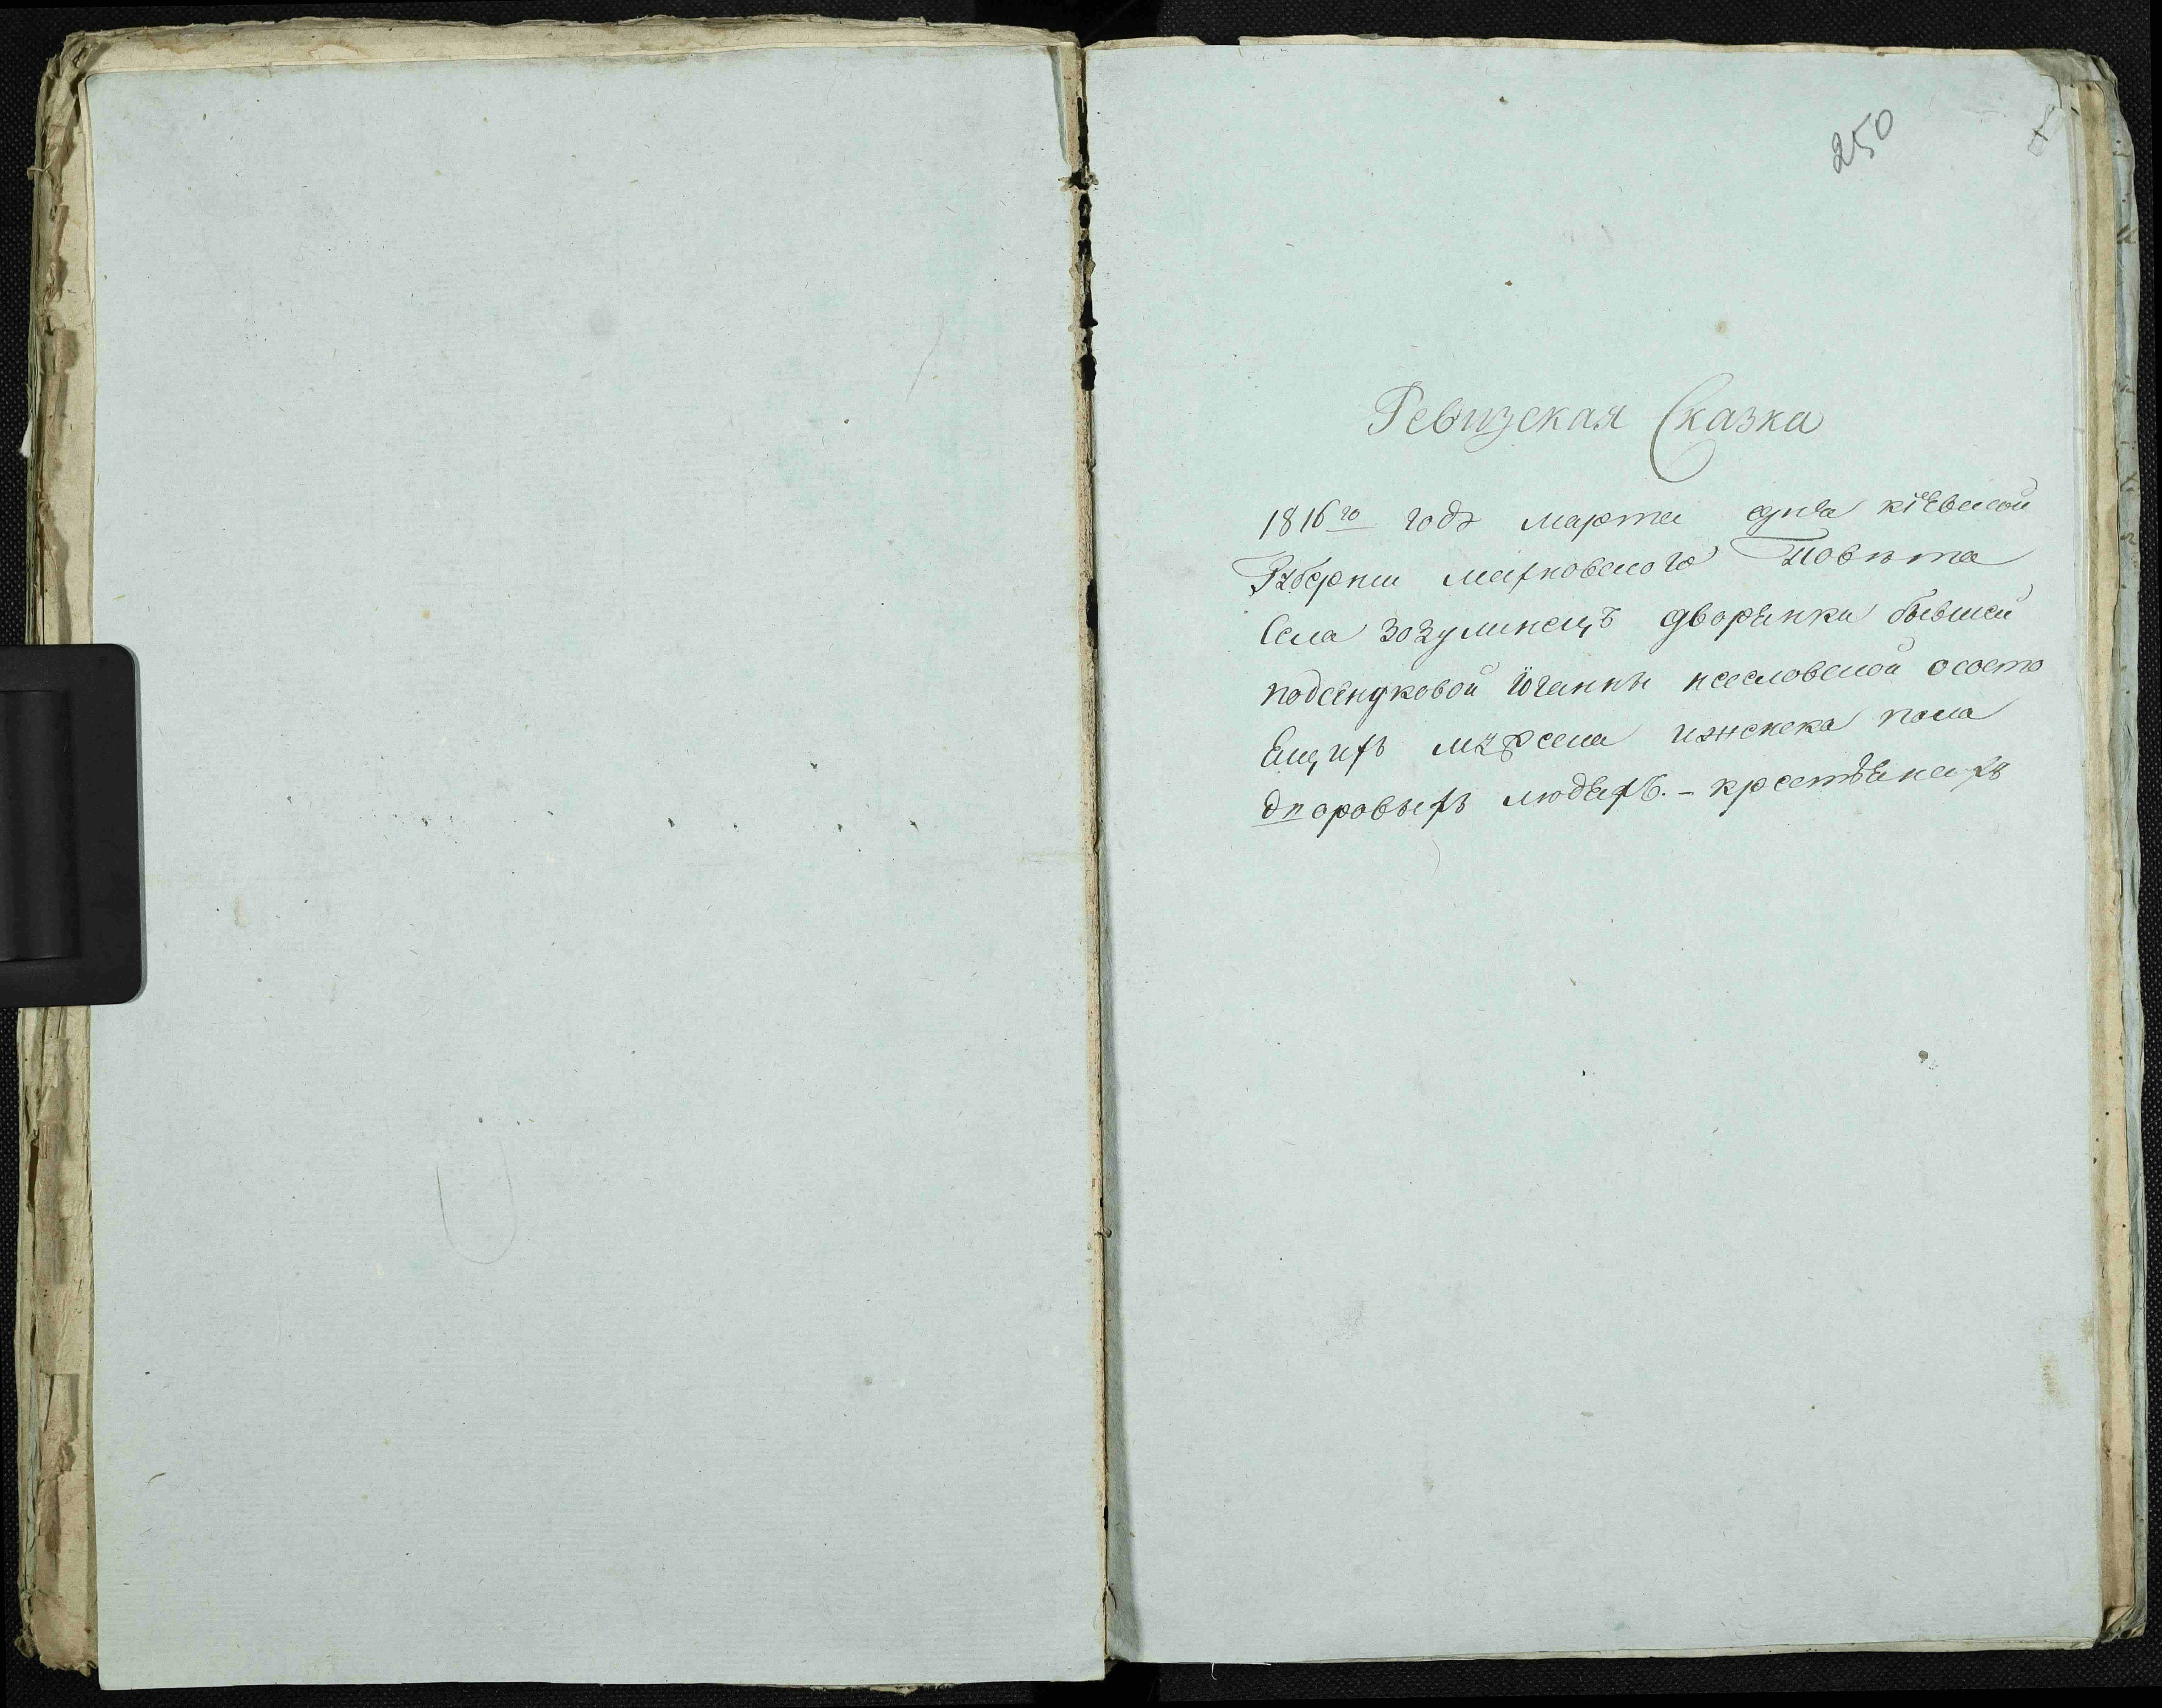 250
Ревизская Сказка
1816го года марта дня кіевской
Губернии махновского Повѣта
Села зозулинецъ дворянки бывшей
подсендковой Юганны нсесловской ососто
Ящихъ мужсека иженска пола
дворовыхъ людяхъ. - крестьянахъ